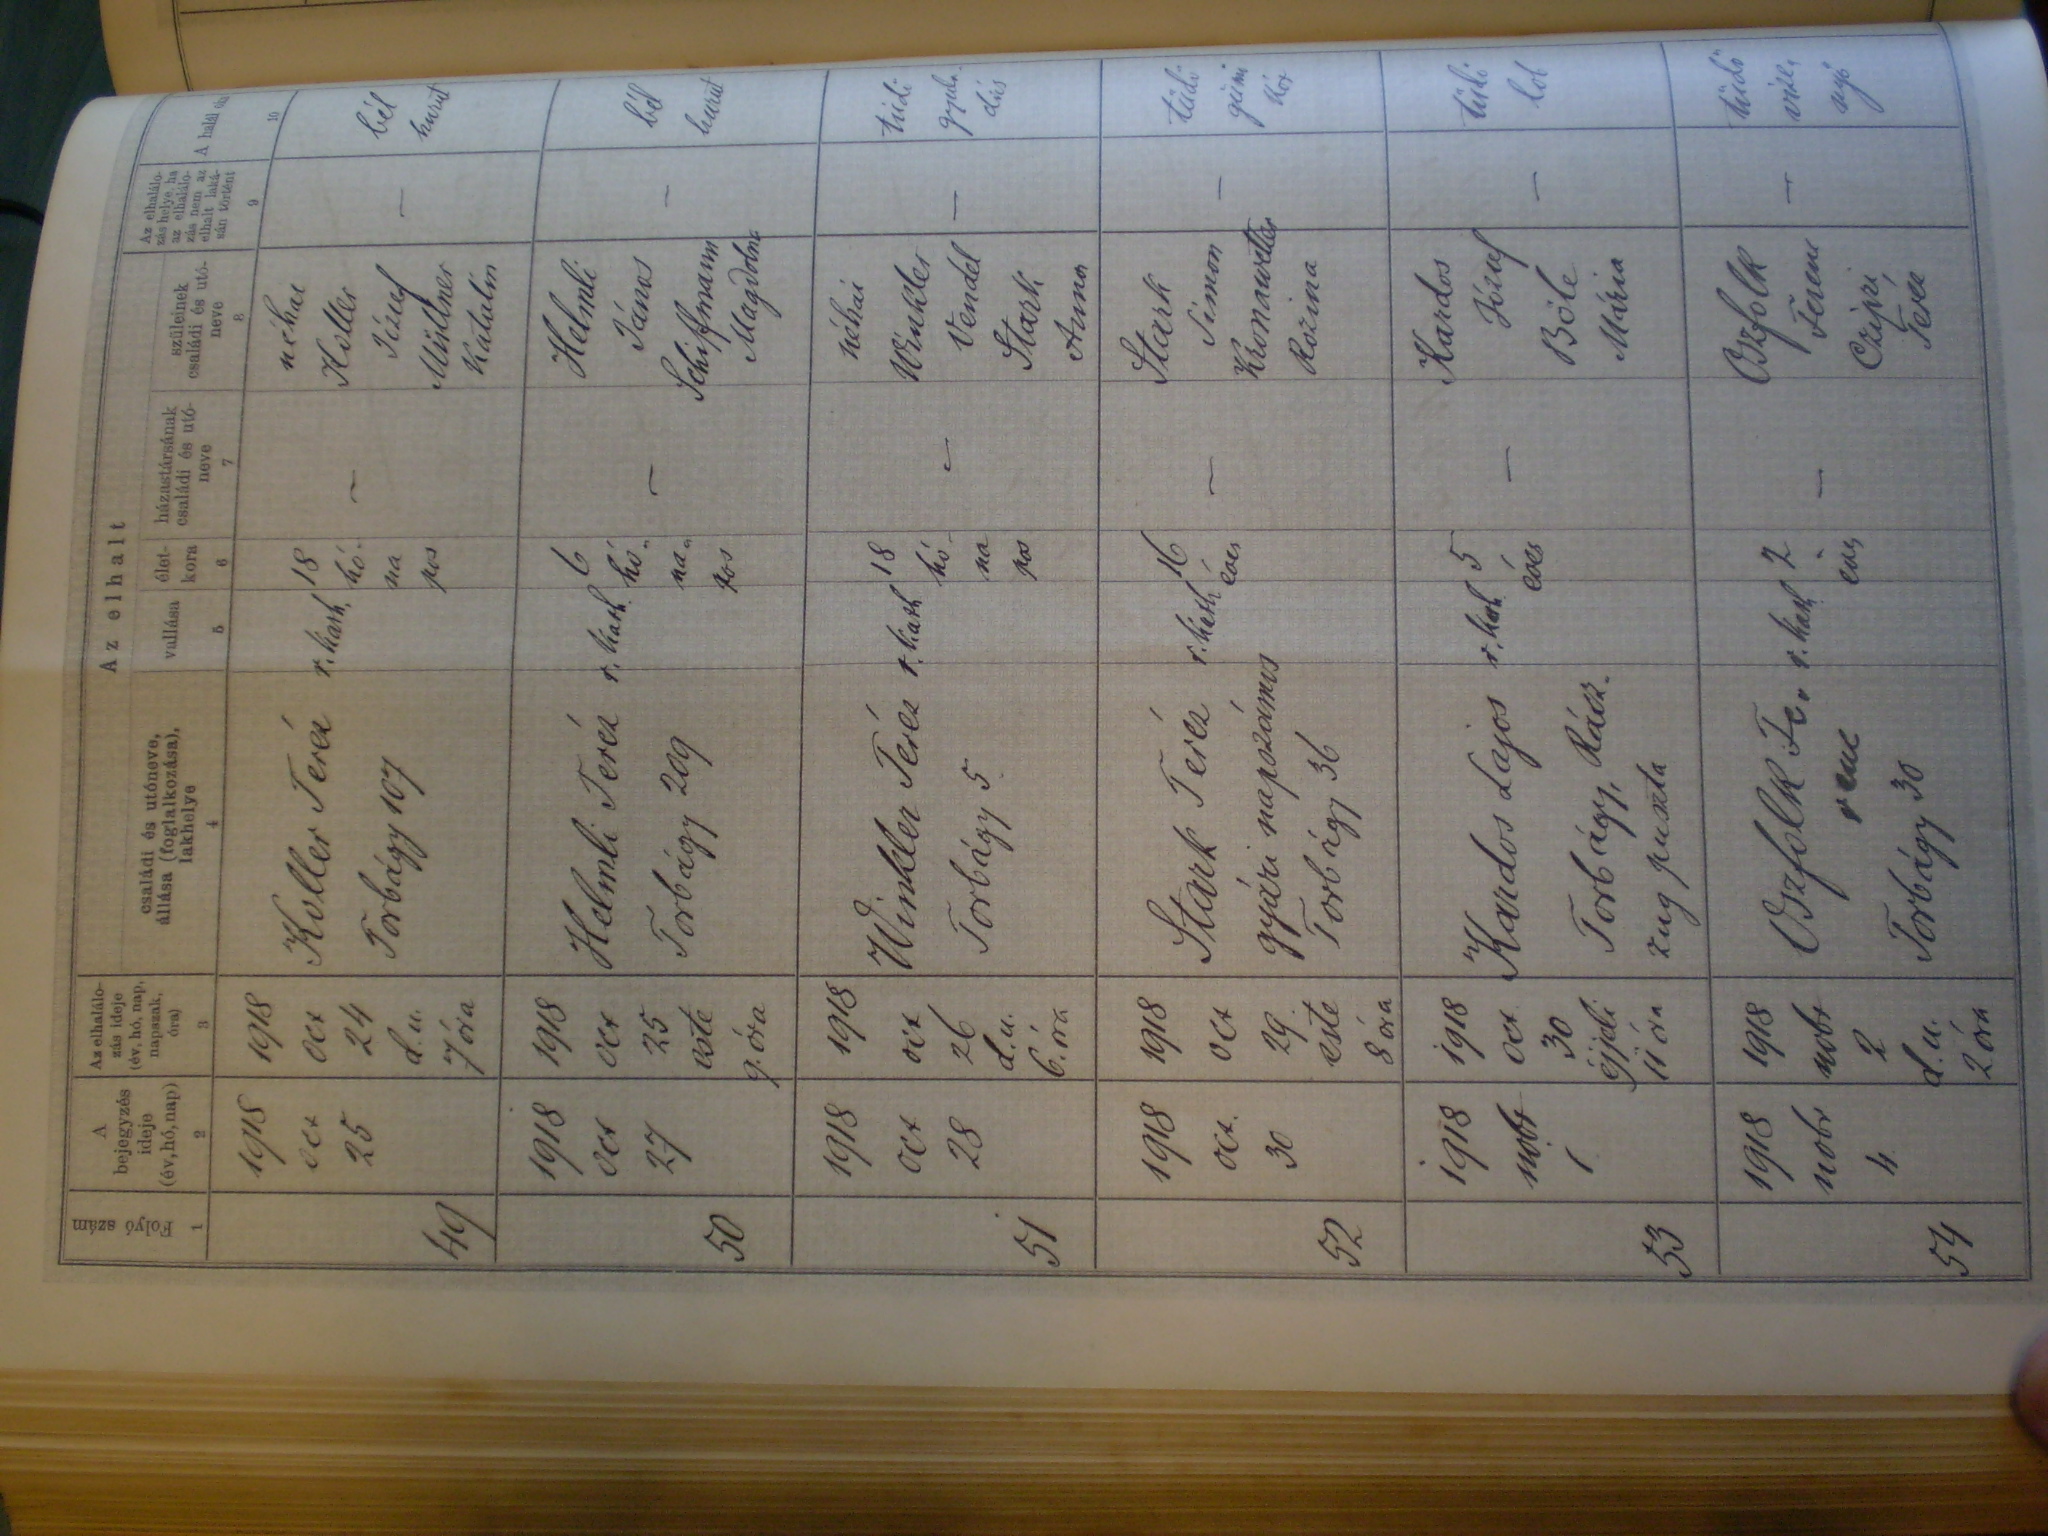 Folyó szám
A bejegyzés ideje (év, hó, nap)
Az elhalálo-
zás ideje
(év, hó, nap,
napszak,
óra)
Az elhalt
családi és utóneve,
állása (foglalkozása),
lakhelye
vallása
élet-
kora
házastársának
családi és utó-
neve
szüleinek
családi és utó-
neve
Az elhalálo-
zás helye, ha
az elhalálo-
zás nem az
elhalt laká-
sán történt
A halál
1 2 3 4 5 6 7 8 9 10
49
1918
oct
25
1918
oct
24
d.u.
7 óra
Koller Teréz
Torbágy 107
r. kath.
18
hó-
na
pos
—
néhai
Koller
József
Mittner
Katalin
—
bél
hurut
50
1918
oct
27
1918
oct
25
este
9. óra
Helmli Teréz
Torbágy 209
r. kath.
6
hó-
na-
pos
—
Helmli
János
Schiffmann
Magdolna
—
bél
hurut
51
1918
oct
28
1918
oct
26
d.u.
6. óra
Winkler Teréz
Torbágy 5
r. kath
18
hó-
na
pos
—
néhai
Winkler
Vendel
Stark
Anna
—
tüdő
52
1918
oct.
30
1918
oct
29.
este
8 óra
Stark Teréz
gyári napszámos
Torbágy 36
r. kath
16
éves
—
Stark
Simon
Kronawetter
Rozina
—
tüdő
gümő
kór
53
1918
nobr
1
1918
oct
30
éjjeli
11 óra
Kardos Lajos
Torbágy, Rácz-
zug puszta
r. kath
5
éves
—
Kardos
József
Böle
Mária
—
tüdő
lob
54
1918
nobr
4
1918
nobr
2
d.u.
2 óra
Oszfolk Fe-
renc
Torbágy 30
r. kath
2
éves
—
Oszfolk
Ferenc
Czipri
Teréz
—
tüdő